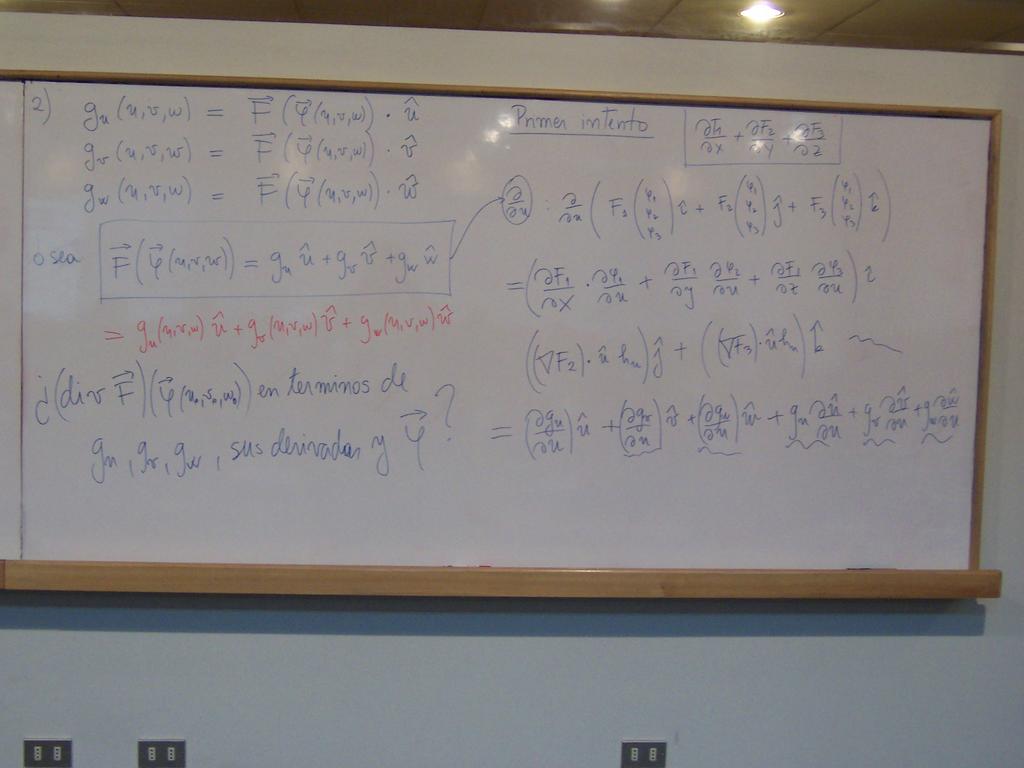 2) g_u (u,v,w) = F⃗ (φ⃗(u,v,w)) · û
g_v (u,v,w) = F⃗ (φ⃗(u,v,w)) · v̂
g_w (u,v,w) = F⃗ (φ⃗(u,v,w)) · ŵ
o sea F⃗(φ⃗(u,v,w)) = g_u û + g_v v̂ + g_w ŵ
= g_u(u,v,w) û + g_v(u,v,w) v̂ + g_w(u,v,w) ŵ
¿(div F⃗)(φ⃗(u₀,v₀,w₀)) en terminos de
g_u, g_v, g_w, sus derivadas y φ⃗?
Primer intento
∂F₁/∂x + ∂F₂/∂y + ∂F₃/∂z
∂/∂u : ∂/∂u ( F₁(φ₁ φ₂ φ₃) î + F₂(φ₁ φ₂ φ₃) ĵ + F₃(φ₁ φ₂ φ₃) k̂ )
= (∂F₁/∂x · ∂φ₁/∂u + ∂F₁/∂y ∂φ₂/∂u + ∂F₁/∂z ∂φ₃/∂u) î
((∇F₂) · û h_u) ĵ + ((∇F₃) · û h_u) k̂
= (∂g_u/∂u) û + (∂g_v/∂u) v̂ + (∂g_w/∂u) ŵ + g_u ∂û/∂u + g_v ∂v̂/∂u + g_w ∂ŵ/∂u